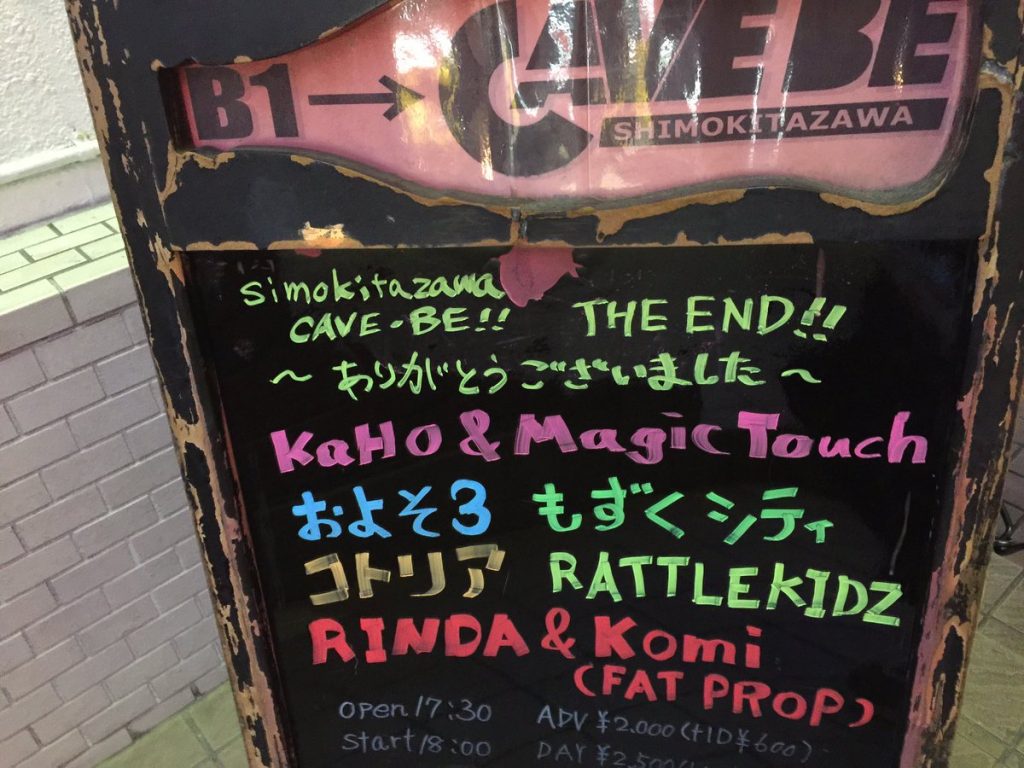 B1 → CAVEBE
SHIMOKITAZAWA
simokitazawa
CAVE-BE!! THE END!!
～ありがとうございました～
KaHO & Magic Touch
およそ3 もずくシティ
コトリア RATTLEKIDZ
RINDA & Komi
(FAT PROP)
open 17:30 ADV ¥2.000(+1D¥600)
start 18:00 DAY ¥2,500